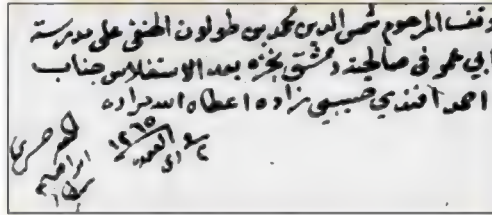 وقف المرحوم شمس الدين محمد بن طولون الحنفي على مدرسة
ابي عمر في صالحية دمشق بخزه بعد الاستغلاس جناب
احمد افندي حسيبي زاده اعطاه الله مراده
في القعدة ١٢٦٥
ابراهيم